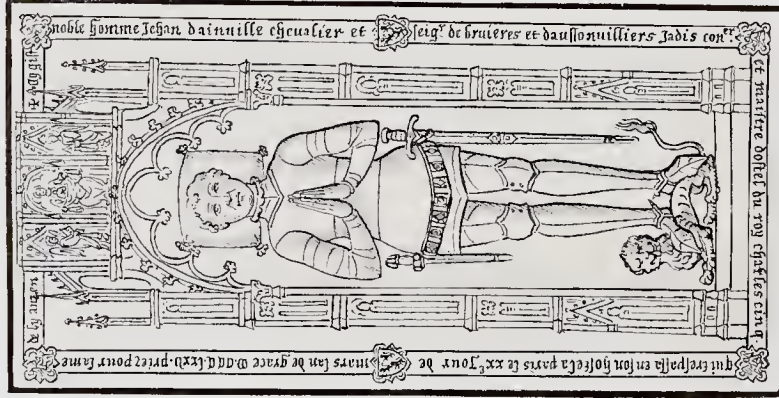 ✠ Cy gist
noble homme Jehan dainuille cheualier et seigr. de bruieres et daussonuilliers Jadis conr.
et maistre dostel du roy charles cinq.
qui trespassa en son hostel a paris le xxe Jour de mars lan de grace M.CCC.lxxv. priez pour lame
de ly amen